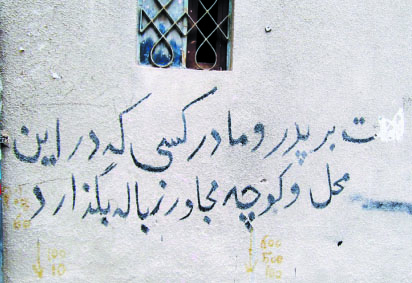 ت بر پدر و مادر کسی که در این
محل و کوچه مجاور زباله بگذارد
100
10
600
500